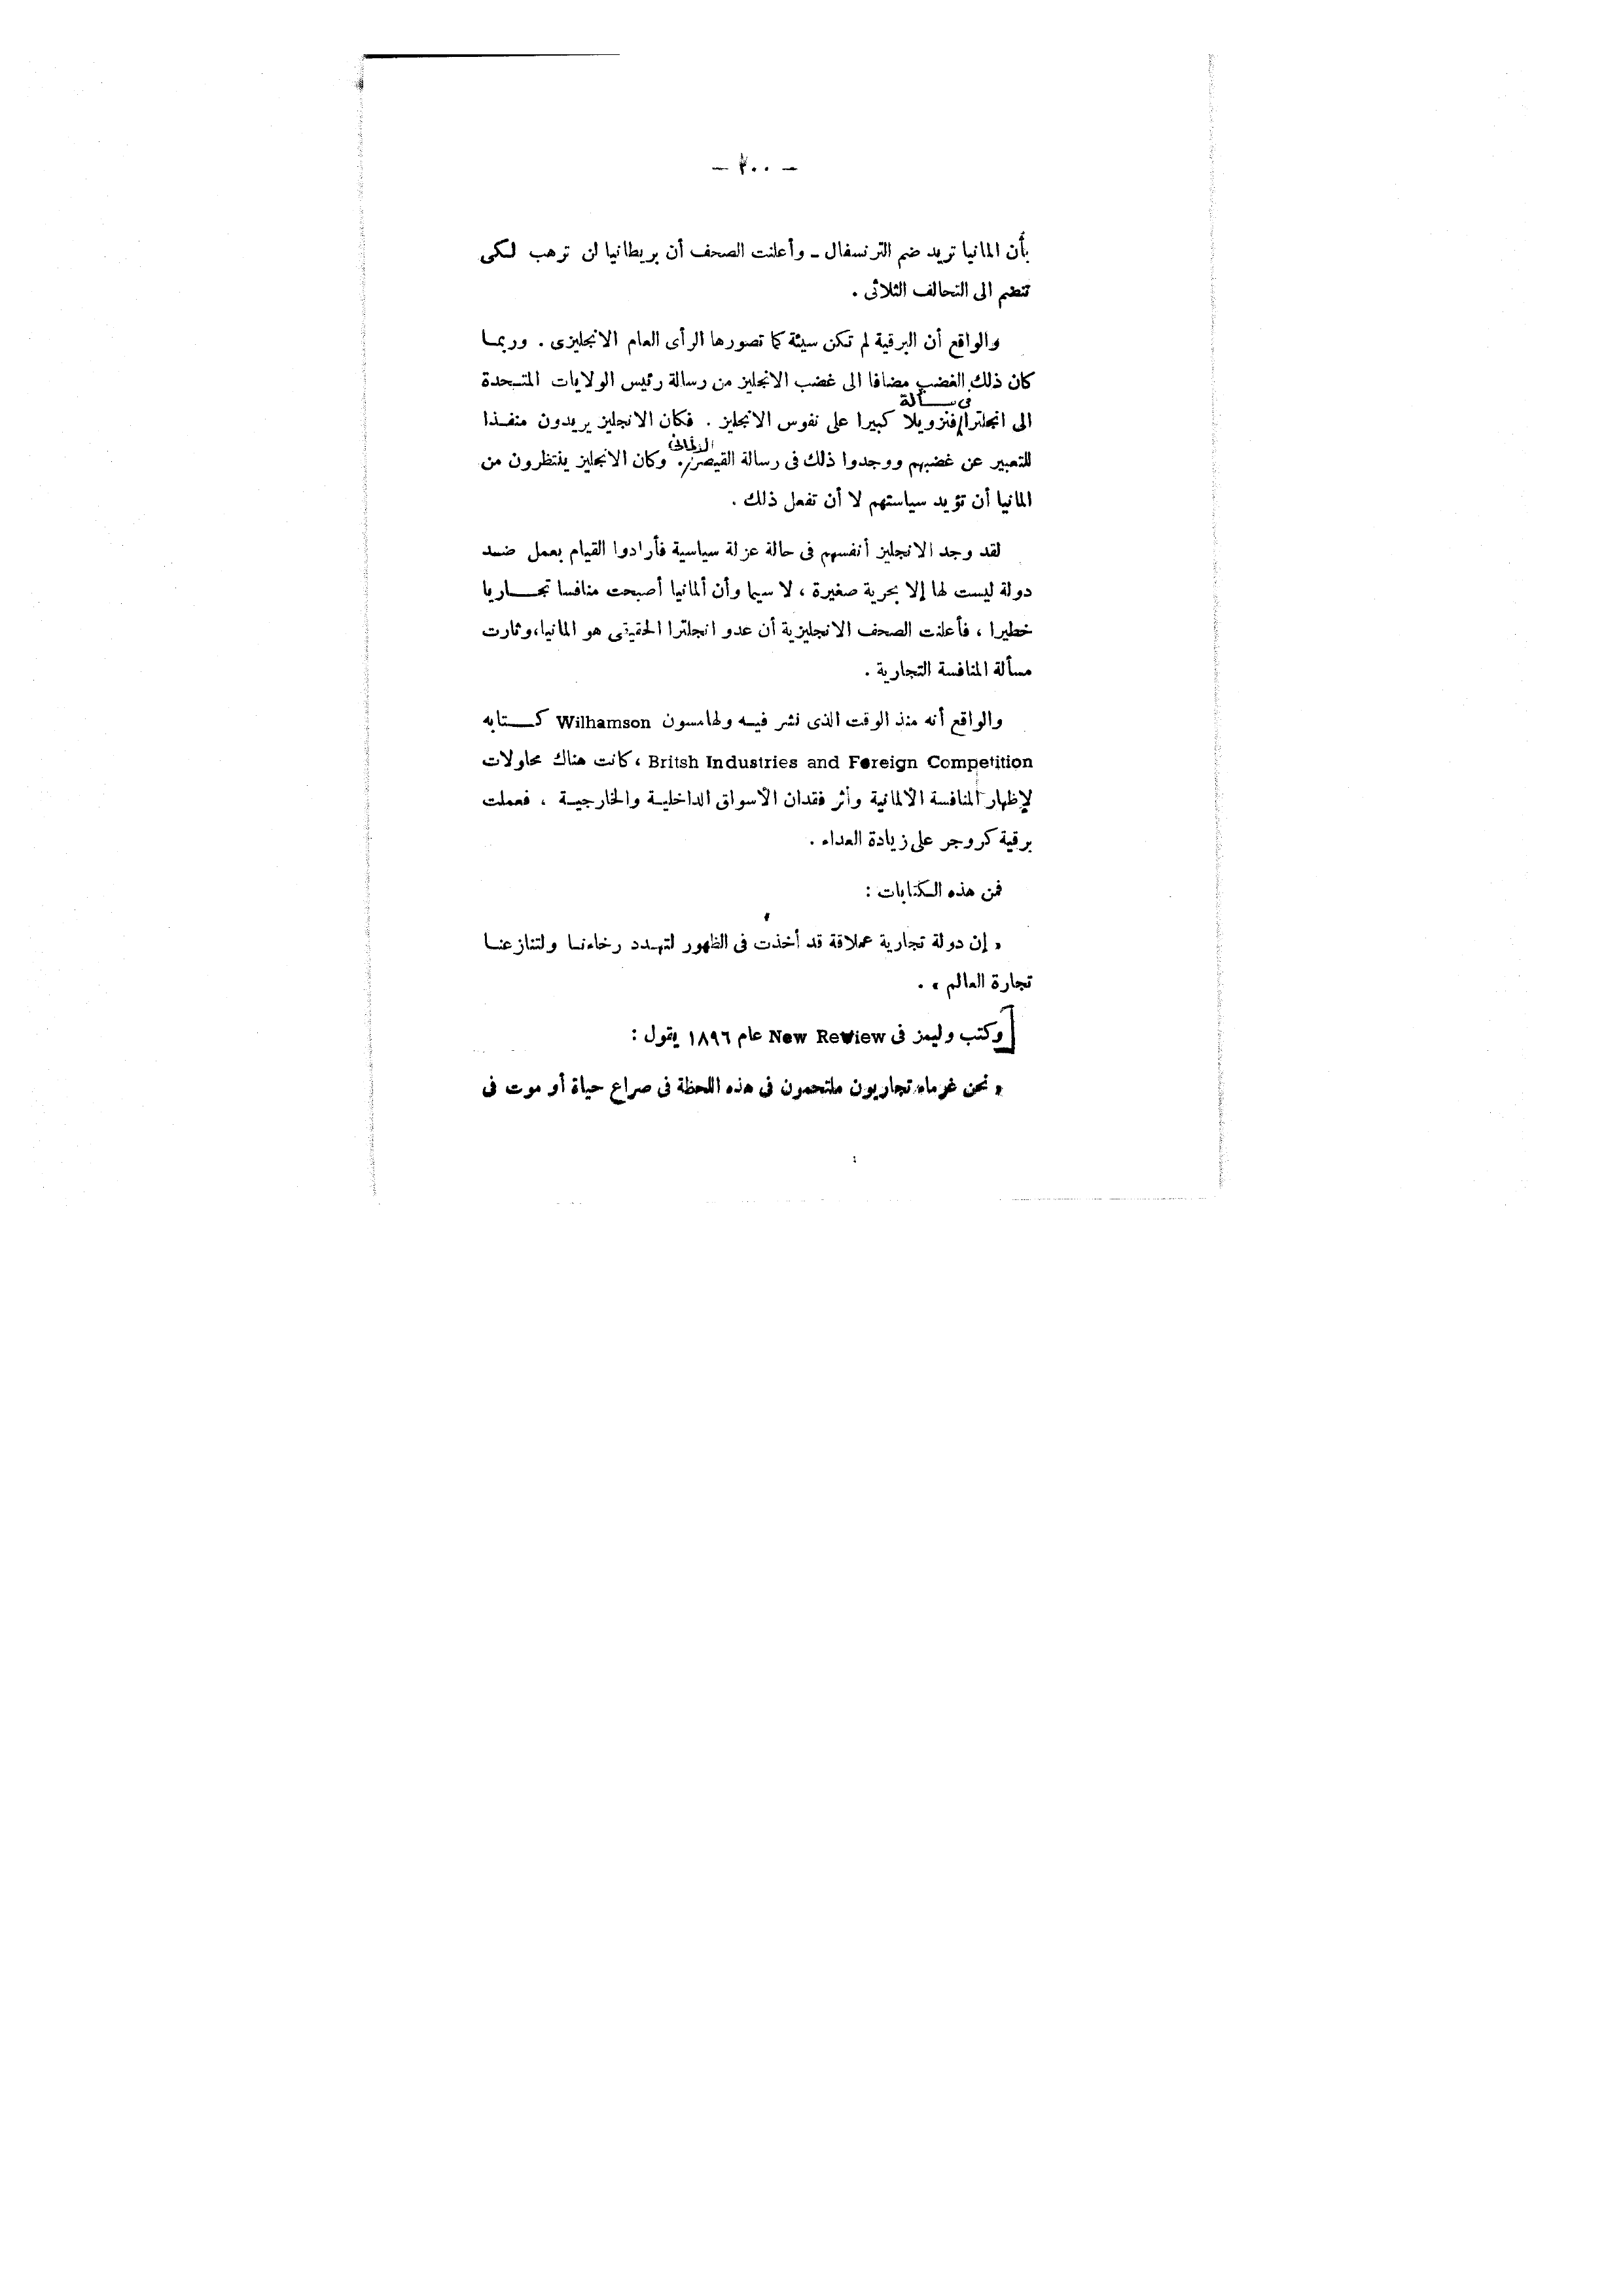 — ٢٠٠ —
بأن المانيا تريد ضم الترنسفال ـ وأعلنت الصحف أن بريطانيا لن ترهب لكى
تنضم الى التحالف الثلاثى .
والواقع أن البرقية لم تكن سيئة كما تصورها الرأى العام الانجليزى . وربما
كان ذلك الغضب مضافا الى غضب الانجليز من رسالة رئيس الولايات المتحدة
فى مسألة
الى انجلترا/فنزويلا كبيرا على نفوس الانجليز . فكان الانجليز يريدون منفذا
الالمانى
للتعبير عن غضبهم ووجدوا ذلك فى رسالة القيصر/. وكان الانجليز ينتظرون من
المانيا أن تؤيد سياستهم لا أن تفعل ذلك .
لقد وجد الانجليز أنفسهم فى حالة عزلة سياسية فأرادوا القيام بعمل ضد
دولة ليست لها إلا بحرية صغيرة ، لا سيما وأن ألمانيا أصبحت منافسا تجاريا
خطيرا ، فأعلنت الصحف الانجليزية أن عدو انجلترا الحقيقى هو المانيا،وثارت
مسألة المنافسة التجارية .
والواقع أنه منذ الوقت الذى نشر فيه ولهامسون Wilhamson كتابه
Britsh Industries and Foreign Competition ، كانت هناك محاولات
لإظهار المنافسة الألمانية وأثر فقدان الأسواق الداخلية والخارجية ، فعملت
برقية كروجر على زيادة العداء .
فمن هذه الكتابات :
« إن دولة تجارية عملاقة قد أخذت فى الظهور لتهدد رخاءنا ولتنازعنا
تجارة العالم » .
[وكتب وليمز فى New Review عام ١٨٩٦ يقول :
« نحن غرماء تجاريون ملتحمون فى هذه اللحظة فى صراع حياة أو موت فى